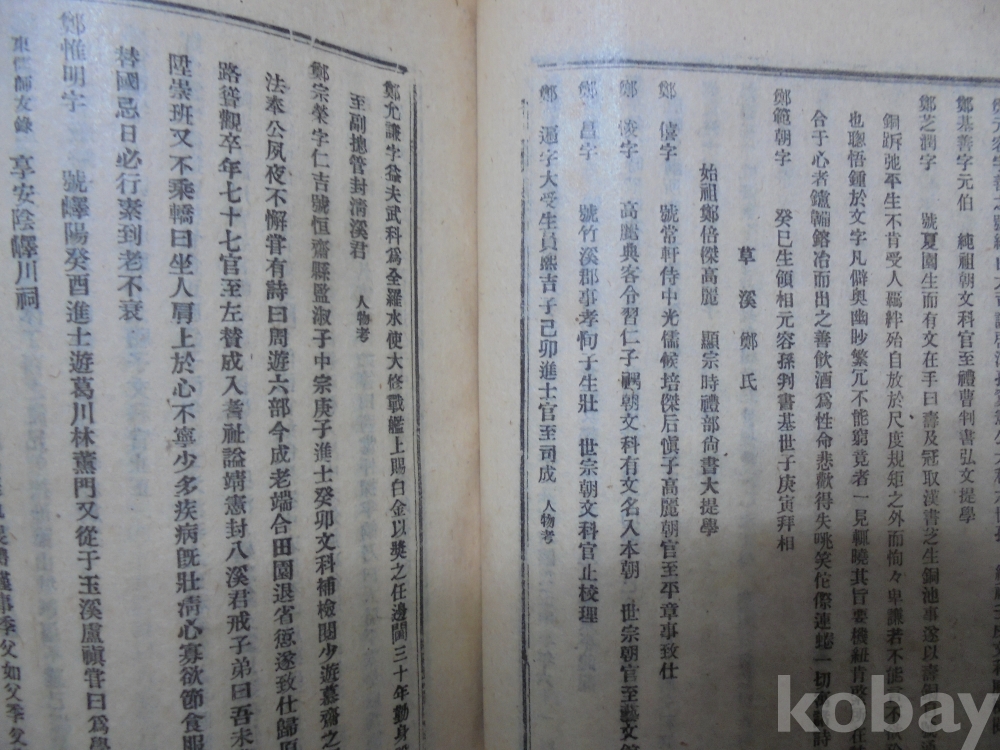 鄭基善字元伯 純祖朝文科官至禮曹判書弘文提學
鄭芝潤字 號夏園生而有文在手曰壽及冠取漢書芝生銅池事遂以壽銅
銅跅弛平生不肯受人羈絆殆自放於尺度規矩之外而恂々卑謙若不能
也聰悟鍾於文字凡僻奧幽眇繁冗不能窮竟者一見輒曉其旨要機紐肯
合于心者鑪鞴鎔冶而出之善飲酒爲性命悲歡得失咷笑佗傺連蜷一切
鄭範朝字 癸巳生領相元容孫判書基世子庚寅拜相
草溪鄭氏
始祖鄭倍傑高麗 顯宗時禮部尙書大提學
鄭僐字 號常軒侍中光儒候培傑后愼子高麗朝官至平章事致仕
鄭悛字 高麗典客令習仁子禑朝文科有文名入本朝 世宗朝官至藝文
鄭昌字 號竹溪郡事孝恂子生壯 世宗朝文科官止校理
鄭 字大受生員熙吉子己卯進士官至司成 人物考
鄭允謙字益夫武科爲全羅水使大修戰艦上賜白金以奬之任邊閫三十年勤身
至副摠管封淸溪君 人物考
鄭宗榮字仁吉號恒齋縣監淑子中宗庚子進士癸卯文科補檢閱少遊慕齋之
法奉公夙夜不懈嘗有詩曰周遊六部今成老端合田園退省愆遂致仕歸
路聳觀卒年七十七官至左贊成入耆社謚靖憲封八溪君戒子弟曰吾未
陞崇班又不乘轎曰坐人肩上於心不寧少多疾病旣壯淸心寡欲節食服
替國忌日必行素到老不衰
鄭惟明字 號嶧陽癸酉進士遊葛川林薰門又從于玉溪盧禛嘗曰爲學
東儒師友錄 享安陰嶧川祠
季父如父季父
kobay